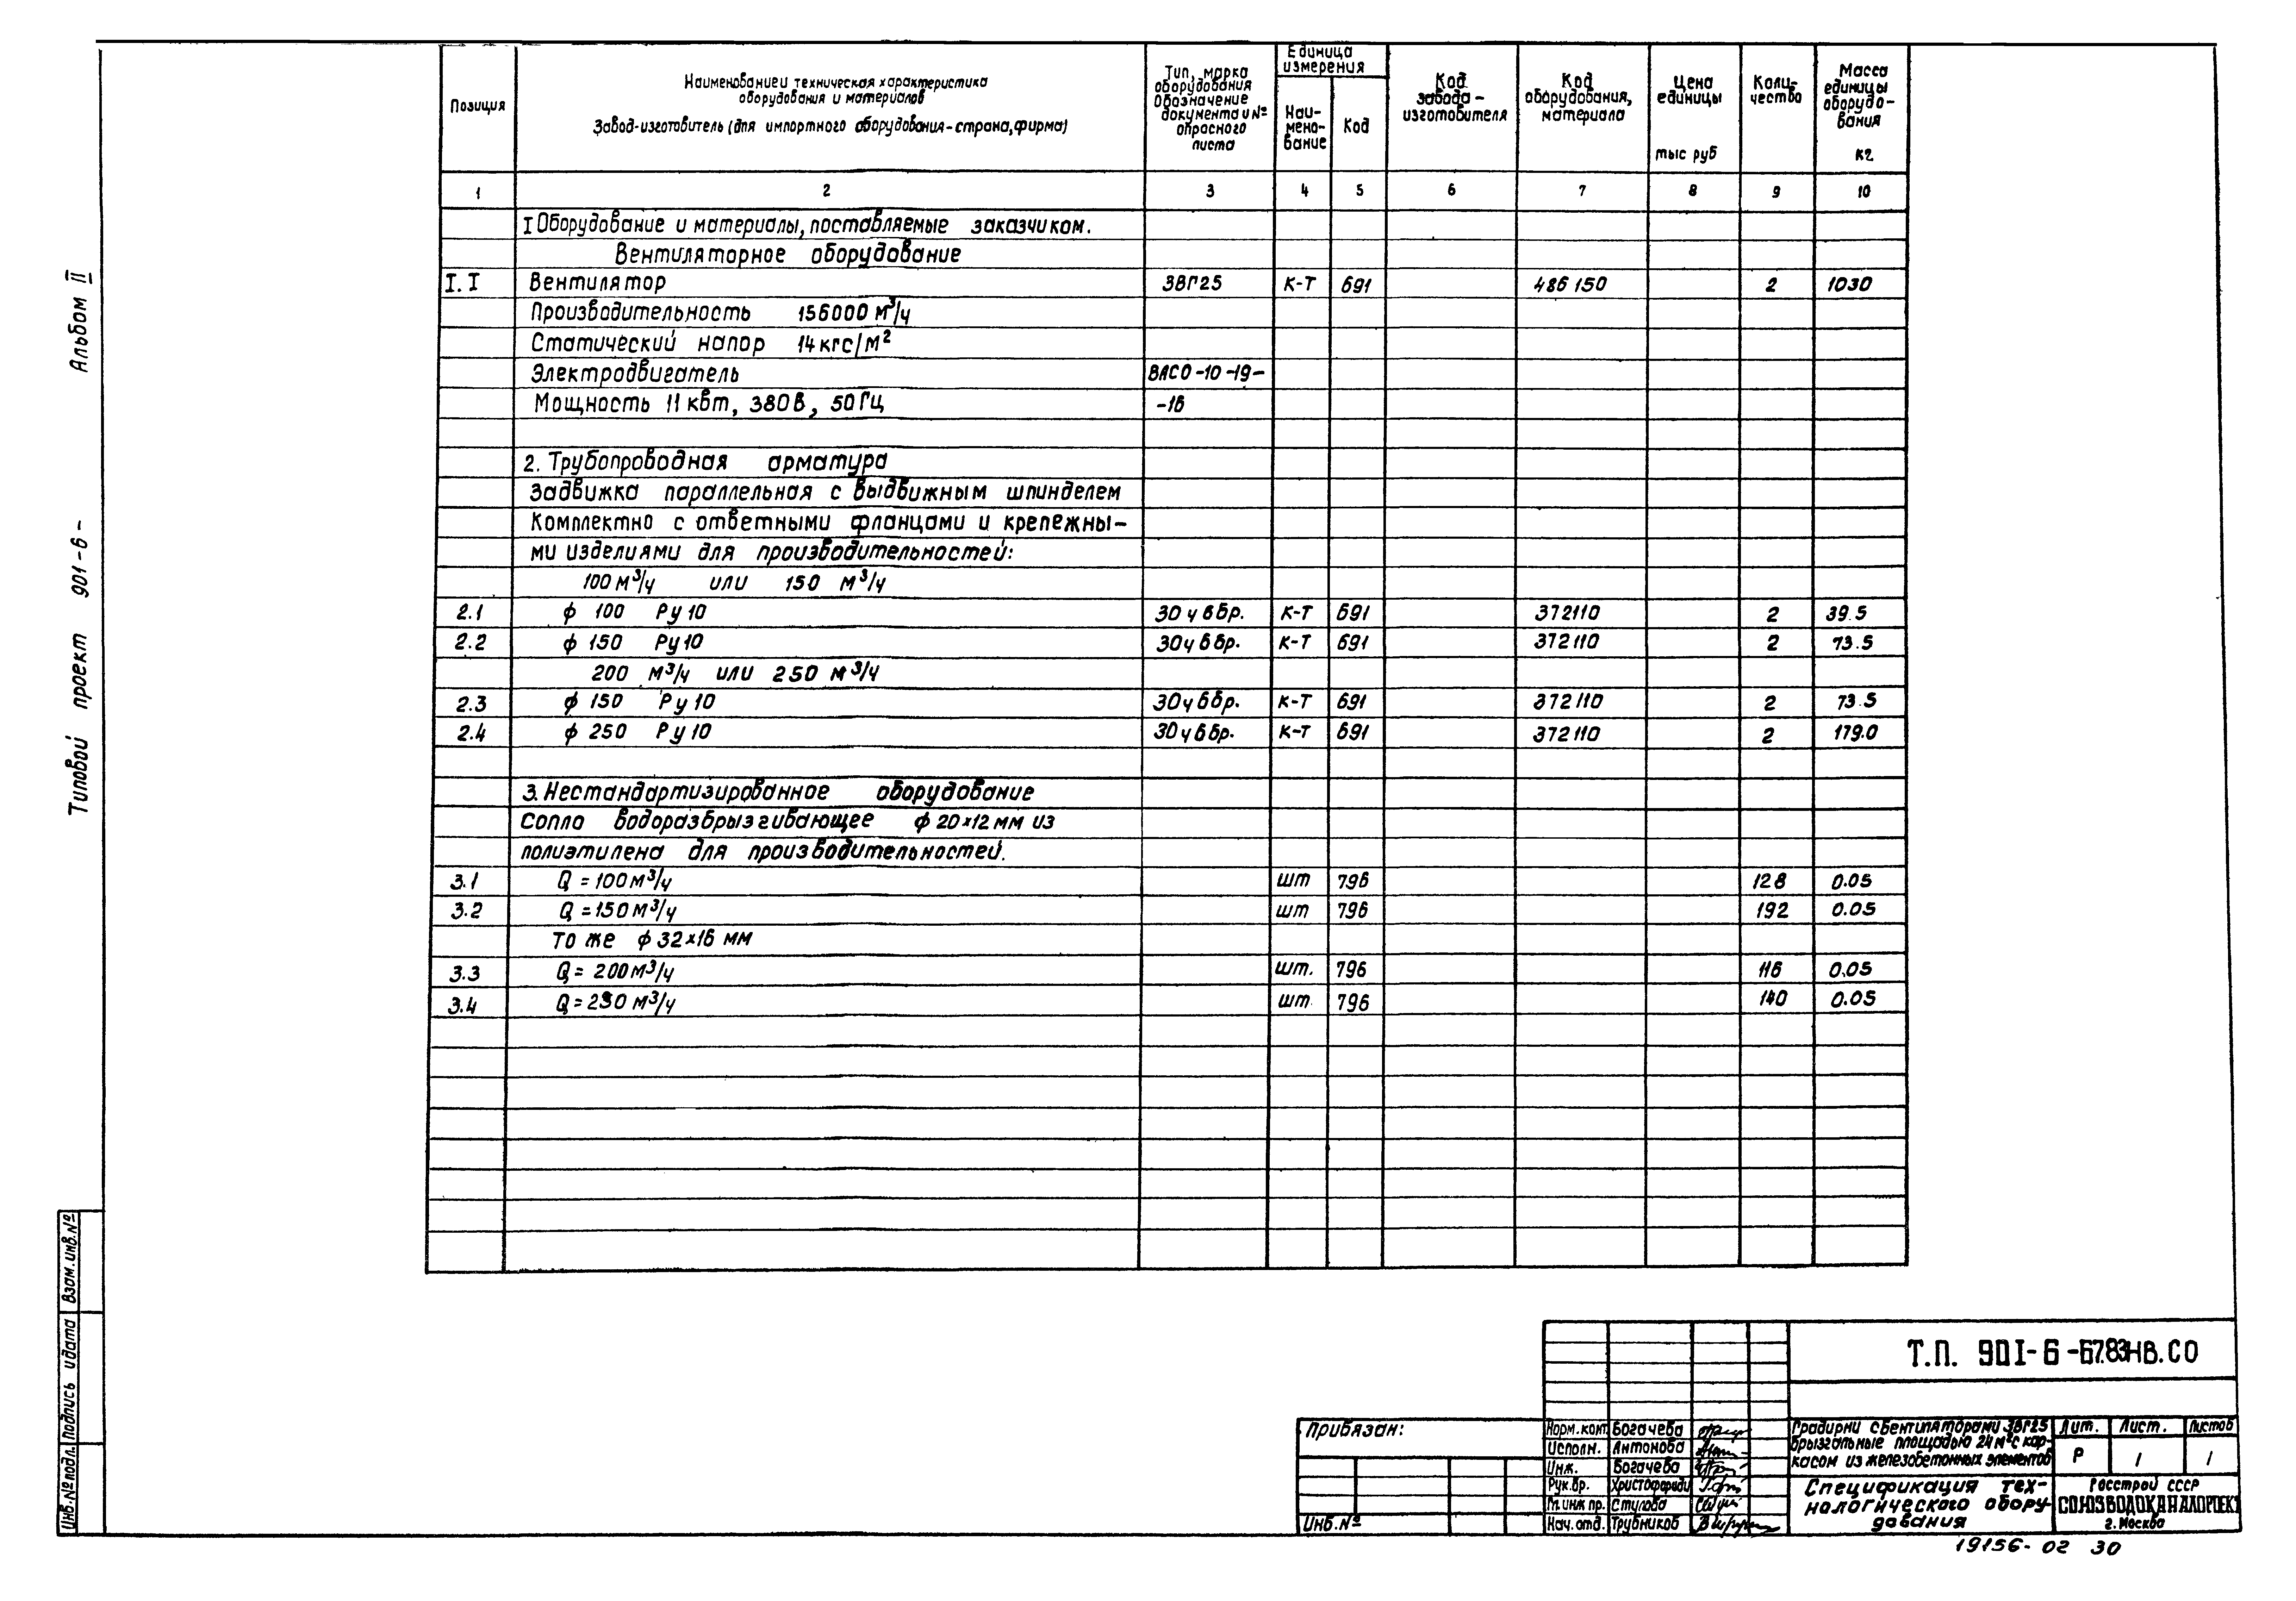 Альбом II
Типовой проект 901-6-
Взам. инв. №
Подпись и дата
Инв. № подл.
Позиция
Наименование и техническая характеристика
оборудования и материалов
Завод-изготовитель (для импортного оборудования - страна, фирма)
Тип, марка
оборудования
Обозначение
документа и №
опросного
листа
Единица
измерения
Наи-
мено-
вание
Код
Код
завода-
изготовителя
Код
оборудования,
материала
Цена
единицы
тыс руб
Коли-
чество
Масса
единицы
оборудо-
вания
кг
1 2 3 4 5 6 7 8 9 10
I Оборудование и материалы, поставляемые заказчиком.
Вентиляторное оборудование
I.I Вентилятор 3ВГ25 к-т 691 486150 2 1030
Производительность 156000 м³/ч
Статический напор 14 кгс/м²
Электродвигатель ВАСО-10-19-
Мощность 11 квт, 380в, 50 Гц -16
2. Трубопроводная арматура
Задвижка параллельная с выдвижным шпинделем
Комплектно с ответными фланцами и крепежны-
ми изделиями для производительностей:
100 м³/ч или 150 м³/ч
2.1 ф 100 Ру10 30ч6бр. к-т 691 372110 2 39.5
2.2 ф 150 Ру10 30ч6бр. к-т 691 372110 2 73.5
200 м³/ч или 250 м³/ч
2.3 ф 150 Ру10 30ч6бр. к-т 691 372110 2 73.5
2.4 ф 250 Ру10 30ч6бр. к-т 691 372110 2 179.0
3. Нестандартизированное оборудование
Сопло водоразбрызгивающее ф 20×12 мм из
полиэтилена для производительностей.
3.1 Q = 100 м³/ч шт 796 128 0.05
3.2 Q = 150 м³/ч шт 796 192 0.05
то же ф 32×16 мм
3.3 Q = 200 м³/ч шт. 796 116 0.05
3.4 Q = 250 м³/ч шт 796 140 0.05
Т.П. 90I-6-67.83-НВ.СО
Привязан:
Инв. №
Норм. конт. Богачева
Исполн. Антонова
Инж. Богачева
Рук. бр. Христофориди
Гл. инж пр. Стулова
Нач. отд. Трубников
Градирни с вентиляторами 3ВГ25
брызгальные площадью 24 м² с кар-
касом из железобетонных элементов
Лит. Лист. Листов
Р 1 1
Спецификация тех-
нологического обору-
дования
Госстрой СССР
СОЮЗВОДОКАНАЛПРОЕКТ
г. Москва
19156-02 30